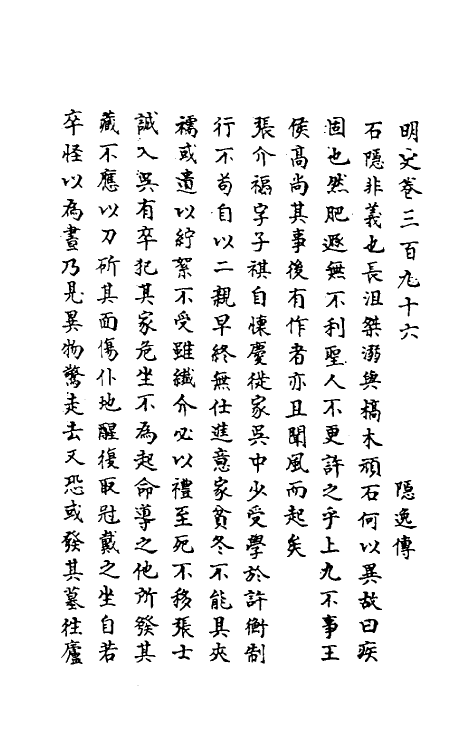 明史卷三百九十六　隐逸傳
石隱非義也長沮桀溺與槁木頑石何以異故曰疾
固也然肥遯無不利聖人不更許之乎上九不事王
侯髙尚其事後有作者亦且聞風而起矣
張介福字子祺自懷慶徙家吳中少受學於許衡制
行不苟自以二親早終無仕進意家貧冬不能具夾
襦或遺以紵絮不受雖纎介必以禮至死不移張士
誠入吳有卒犯其家危坐不為起命導之他所發其
藏不應以刀斫其面傷仆地醒復取冠戴之坐自若
卒怪以為晝乃見異物驚走去又恐或發其墓往廬